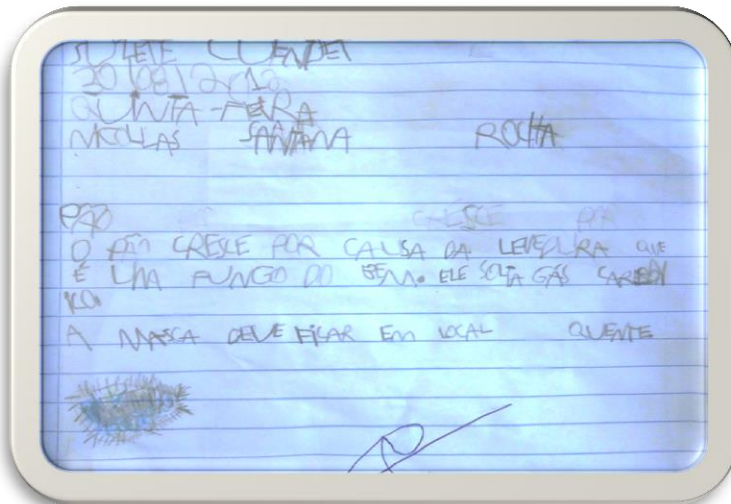 SULETE CUENDET
30/08/2018
QUINTA-FEIRA
NICOLLAS SANTANA ROCHA
PÃO
O PÃO CRESCE POR CAUSA DA LEVEDURA QUE
É UM FUNGO DO BEM. ELE SOLTA GÁS
A MASCA DEVE FICAR EM LOCAL QUENTE